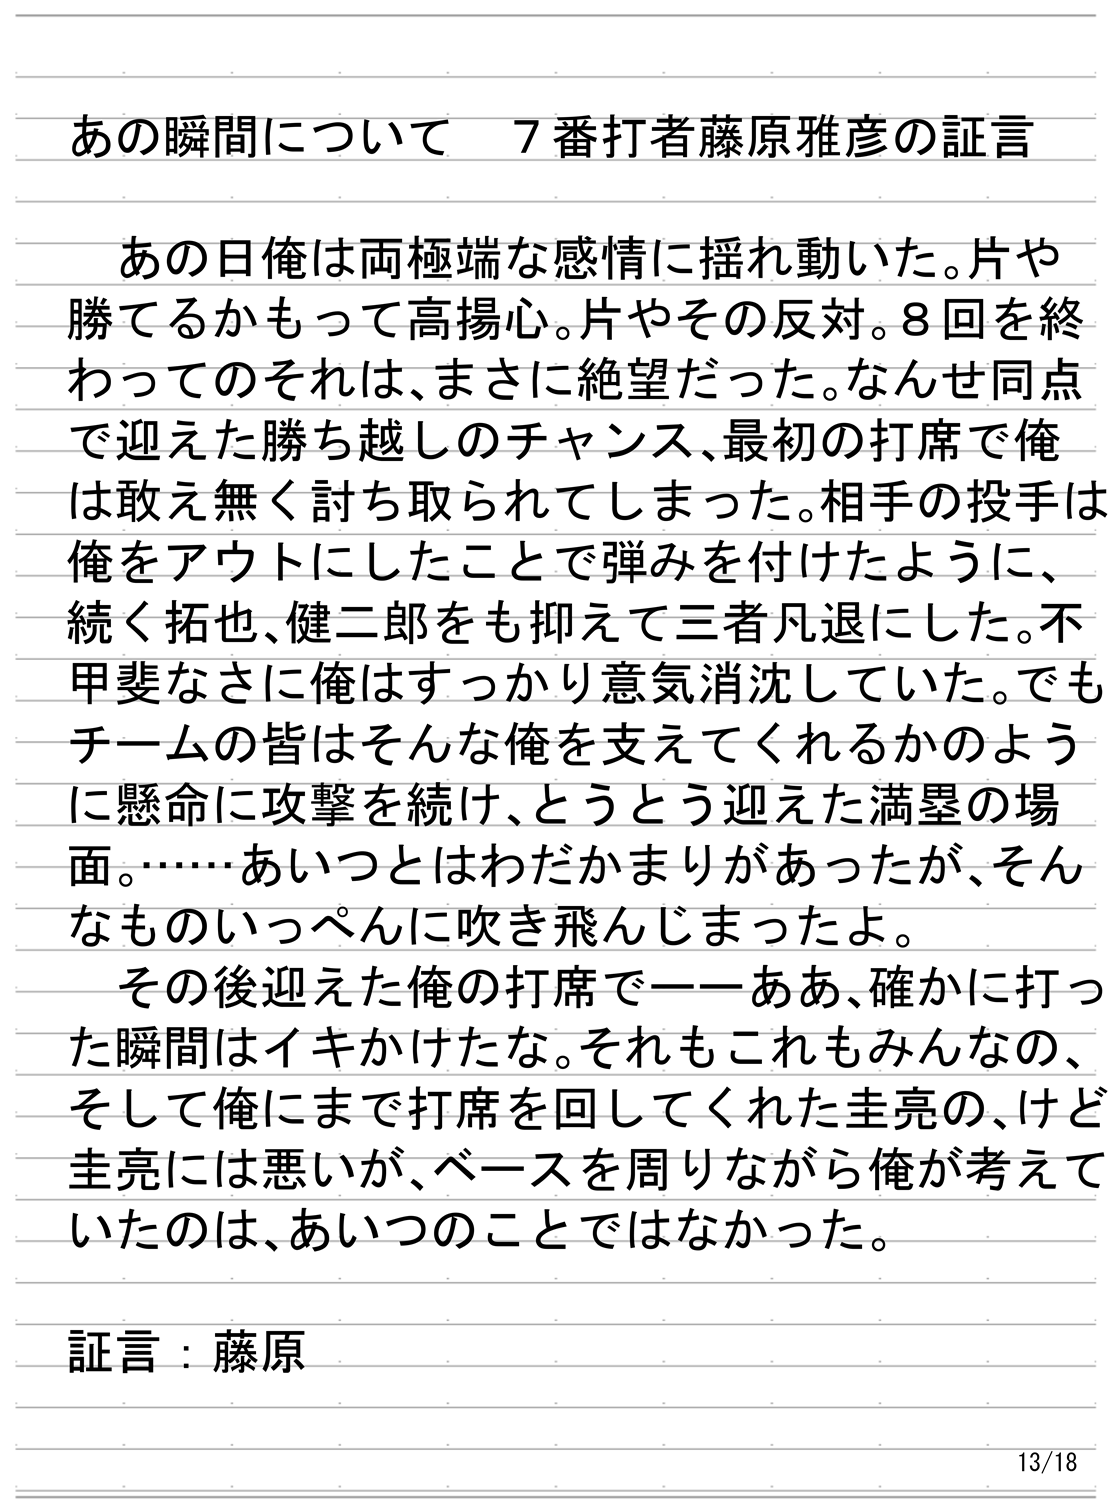 あの瞬間について　７番打者藤原雅彦の証言
　あの日俺は両極端な感情に揺れ動いた。片や
勝てるかもって高揚心。片やその反対。８回を終
わってのそれは、まさに絶望だった。なんせ同点
で迎えた勝ち越しのチャンス、最初の打席で俺
は敢え無く討ち取られてしまった。相手の投手は
俺をアウトにしたことで弾みを付けたように、
続く拓也、健二郎をも抑えて三者凡退にした。不
甲斐なさに俺はすっかり意気消沈していた。でも
チームの皆はそんな俺を支えてくれるかのよう
に懸命に攻撃を続け、とうとう迎えた満塁の場
面。……あいつとはわだかまりがあったが、そん
なものいっぺんに吹き飛んじまったよ。
　その後迎えた俺の打席で――ああ、確かに打っ
た瞬間はイキかけたな。それもこれもみんなの、
そして俺にまで打席を回してくれた圭亮の、けど
圭亮には悪いが、ベースを周りながら俺が考えて
いたのは、あいつのことではなかった。
証言：藤原
13/18